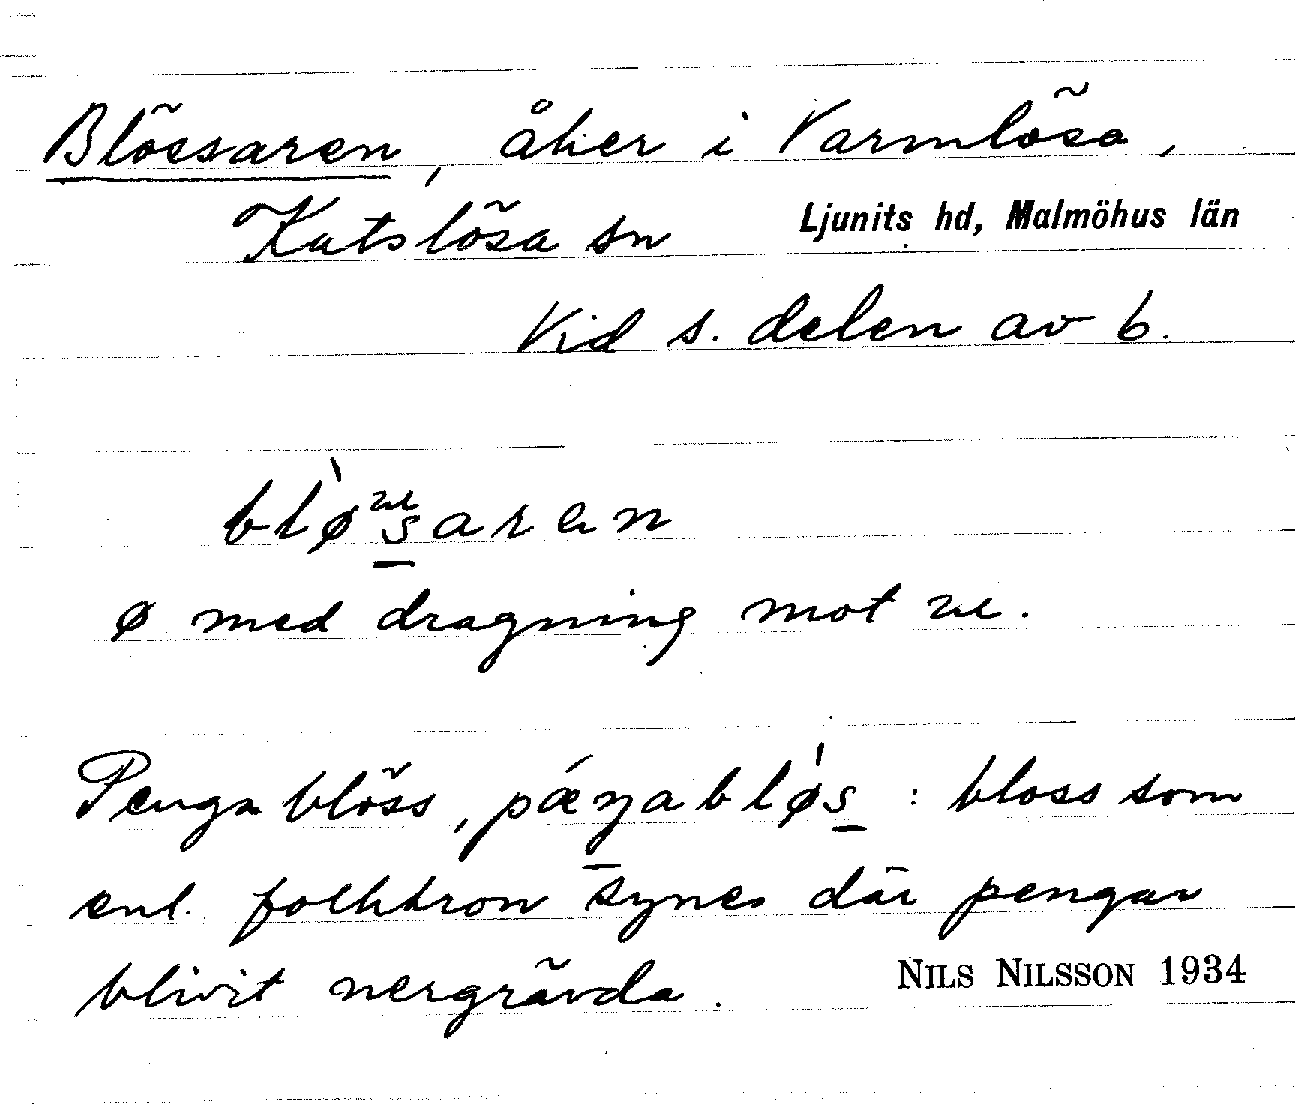 Blössaren, åker i Varmlösa,
Katslösa sn Ljunits hd, Malmöhus län
Vid s. delen av b.
blø̀s̲aren
ø med dragning mot æ.
Pengablöss, pǽŋabløs̲ : bloss som
enl. folktron synes där pengar
blivit nergrävda.
NILS NILSSON 1934